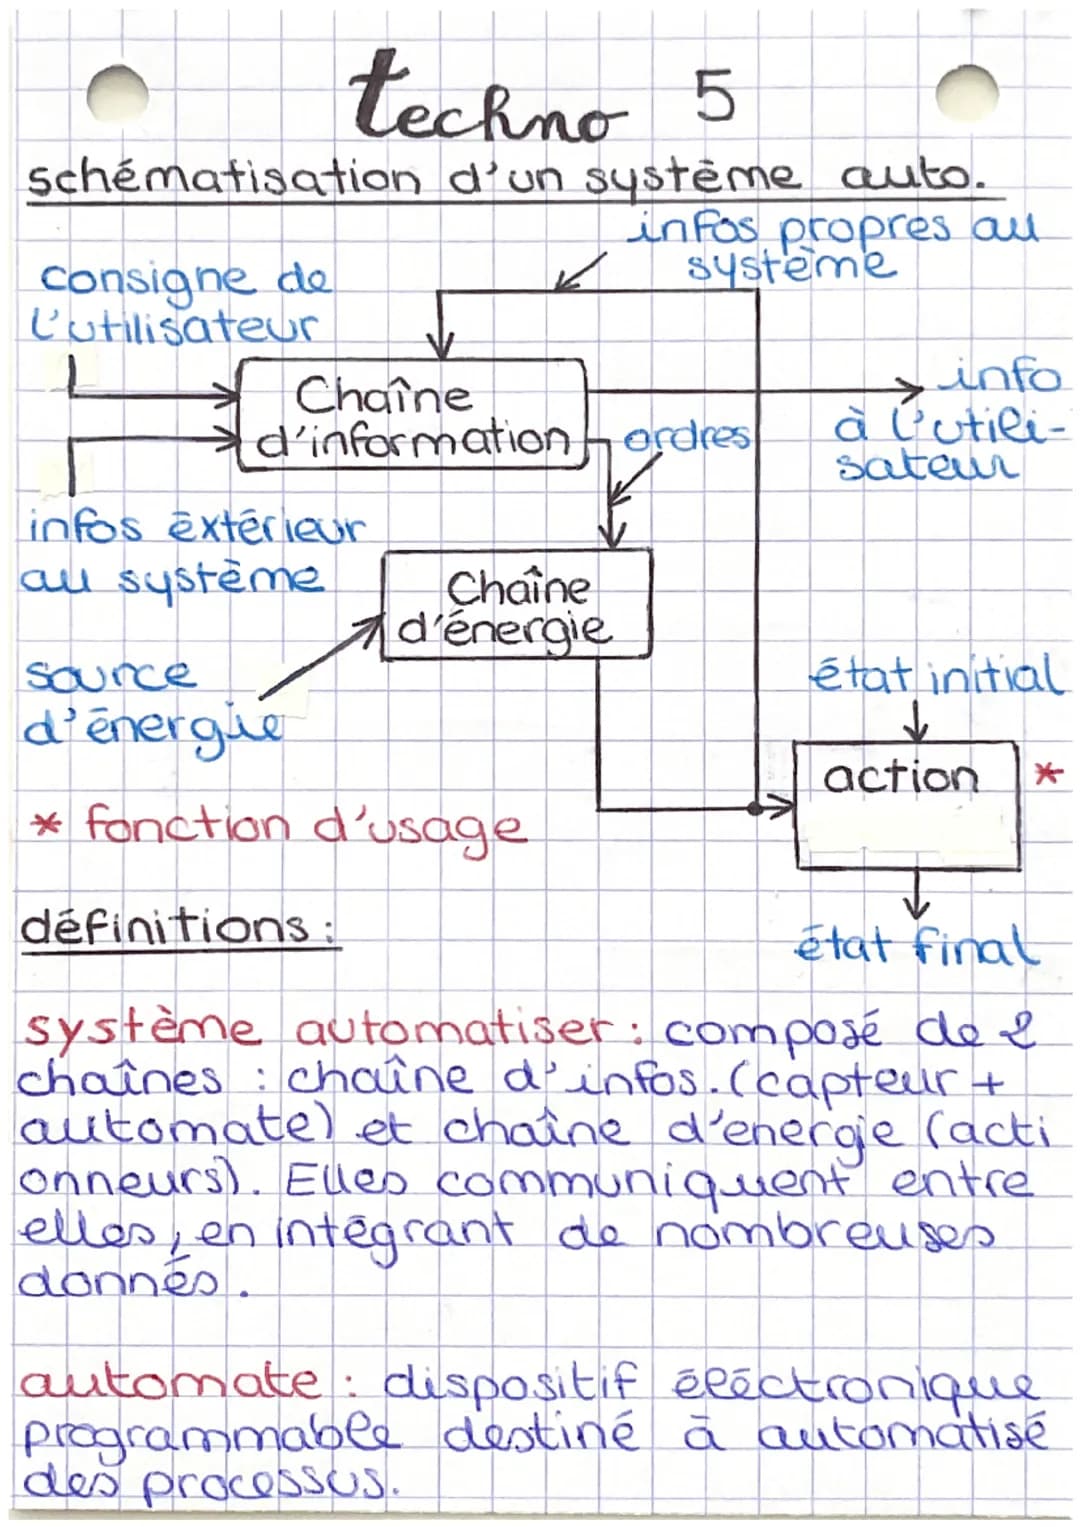 techno 5
schématisation d'un système auto.
infos propres au
système
consigne de
l'utilisateur
Chaîne
d'information
info
à l'utili-
sateur
ordres
infos éxtérieur
au système
Chaîne
d'énergie
source
d'énergie
état initial
action *
* fonction d'usage
état final
définitions :
système automatiser : composé de 2
chaînes : chaîne d'infos. (capteur +
automate) et chaîne d'energie (acti
onneurs). Elles communiquent entre
elles, en intégrant de nombreuses
donnés.
automate : dispositif éléctronique
programmable destiné à automatisé
des processus.